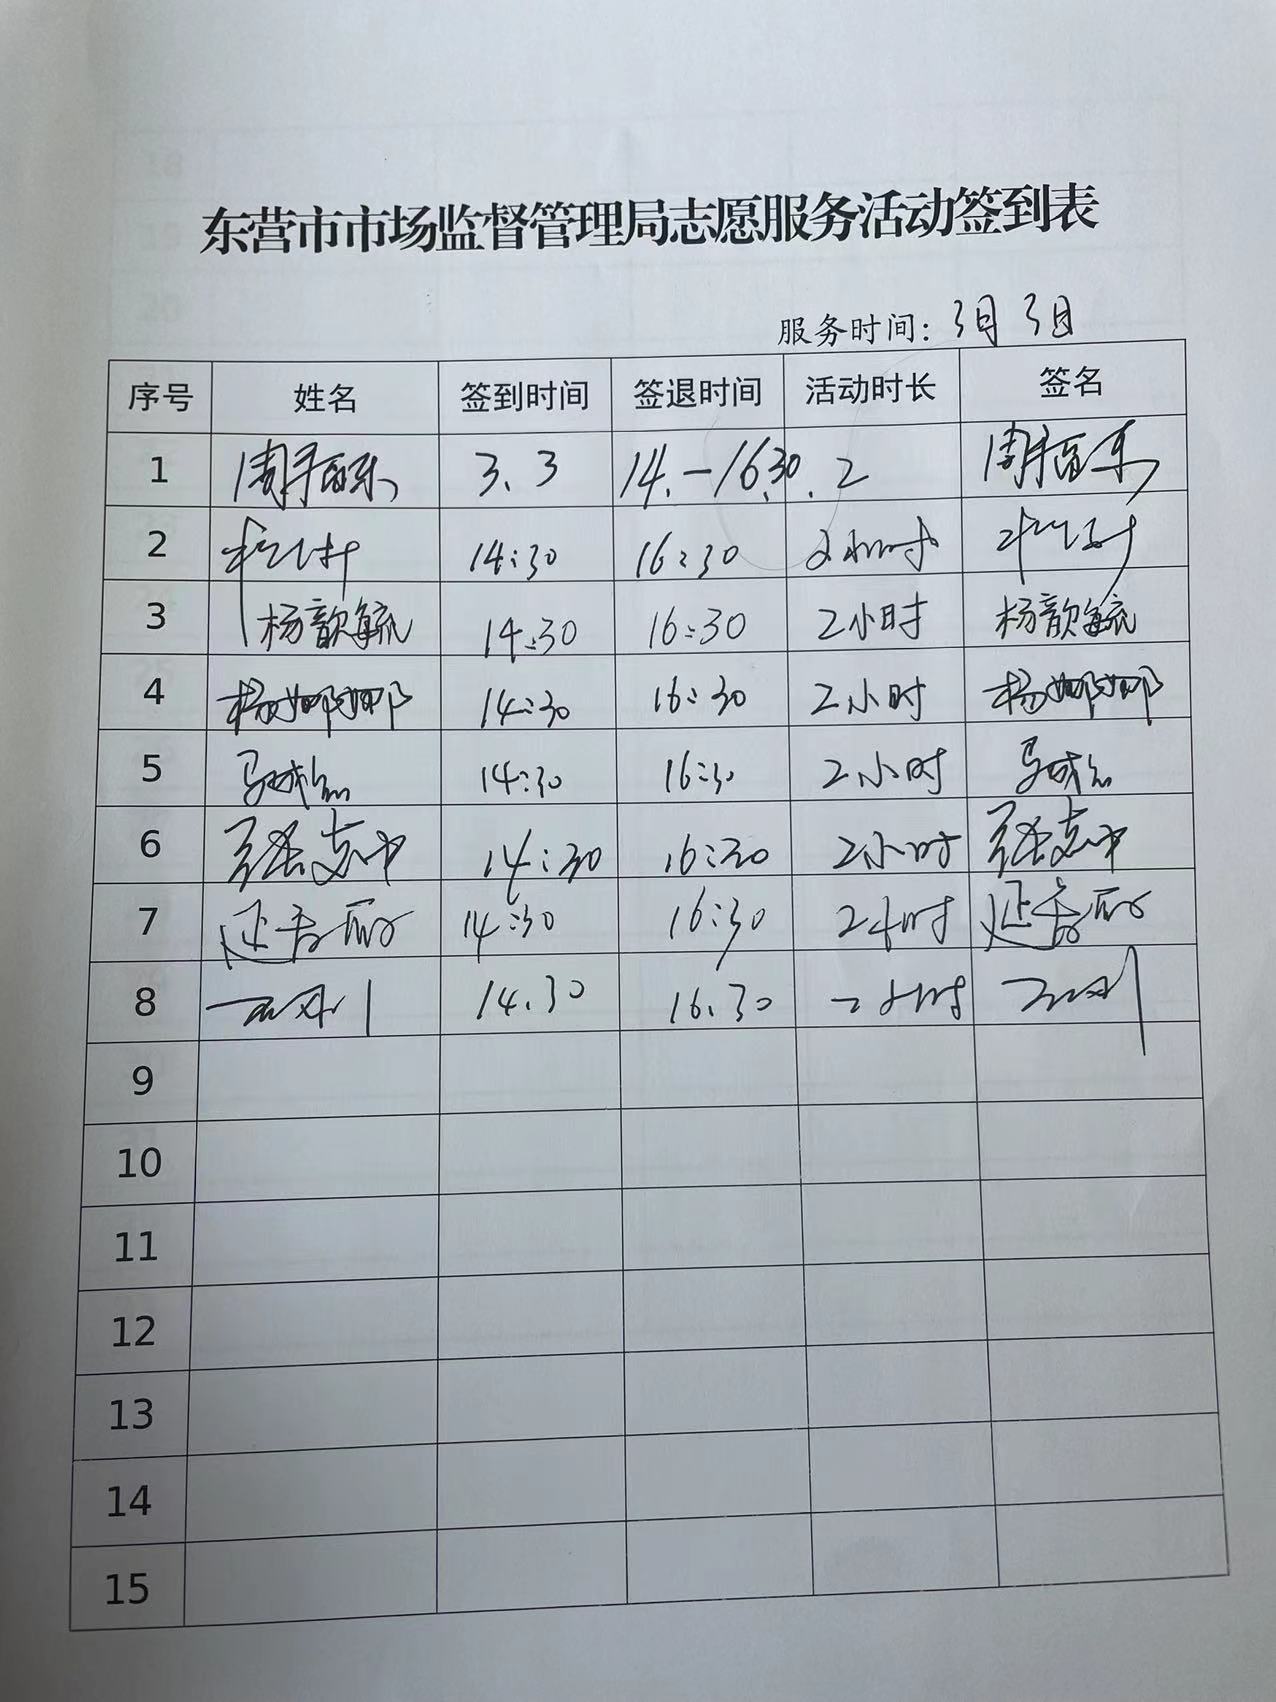 东营市市场监督管理局志愿服务活动签到表
服务时间: 3月3日
序号 姓名 签到时间 签退时间 活动时长 签名
1 3.3 14.-16.30. 2
2 14:30 16:30 2小时
3 杨歆毓 14:30 16:30 2小时 杨歆毓
4 杨娜娜 14:30 16:30 2小时 杨娜娜
5 14:30 16:30 2小时
6 张志中 14:30 16:30 2小时 张志中
7 14:30 16:30 2小时
8 14.30 16.30 2小时
9
10
11
12
13
14
15